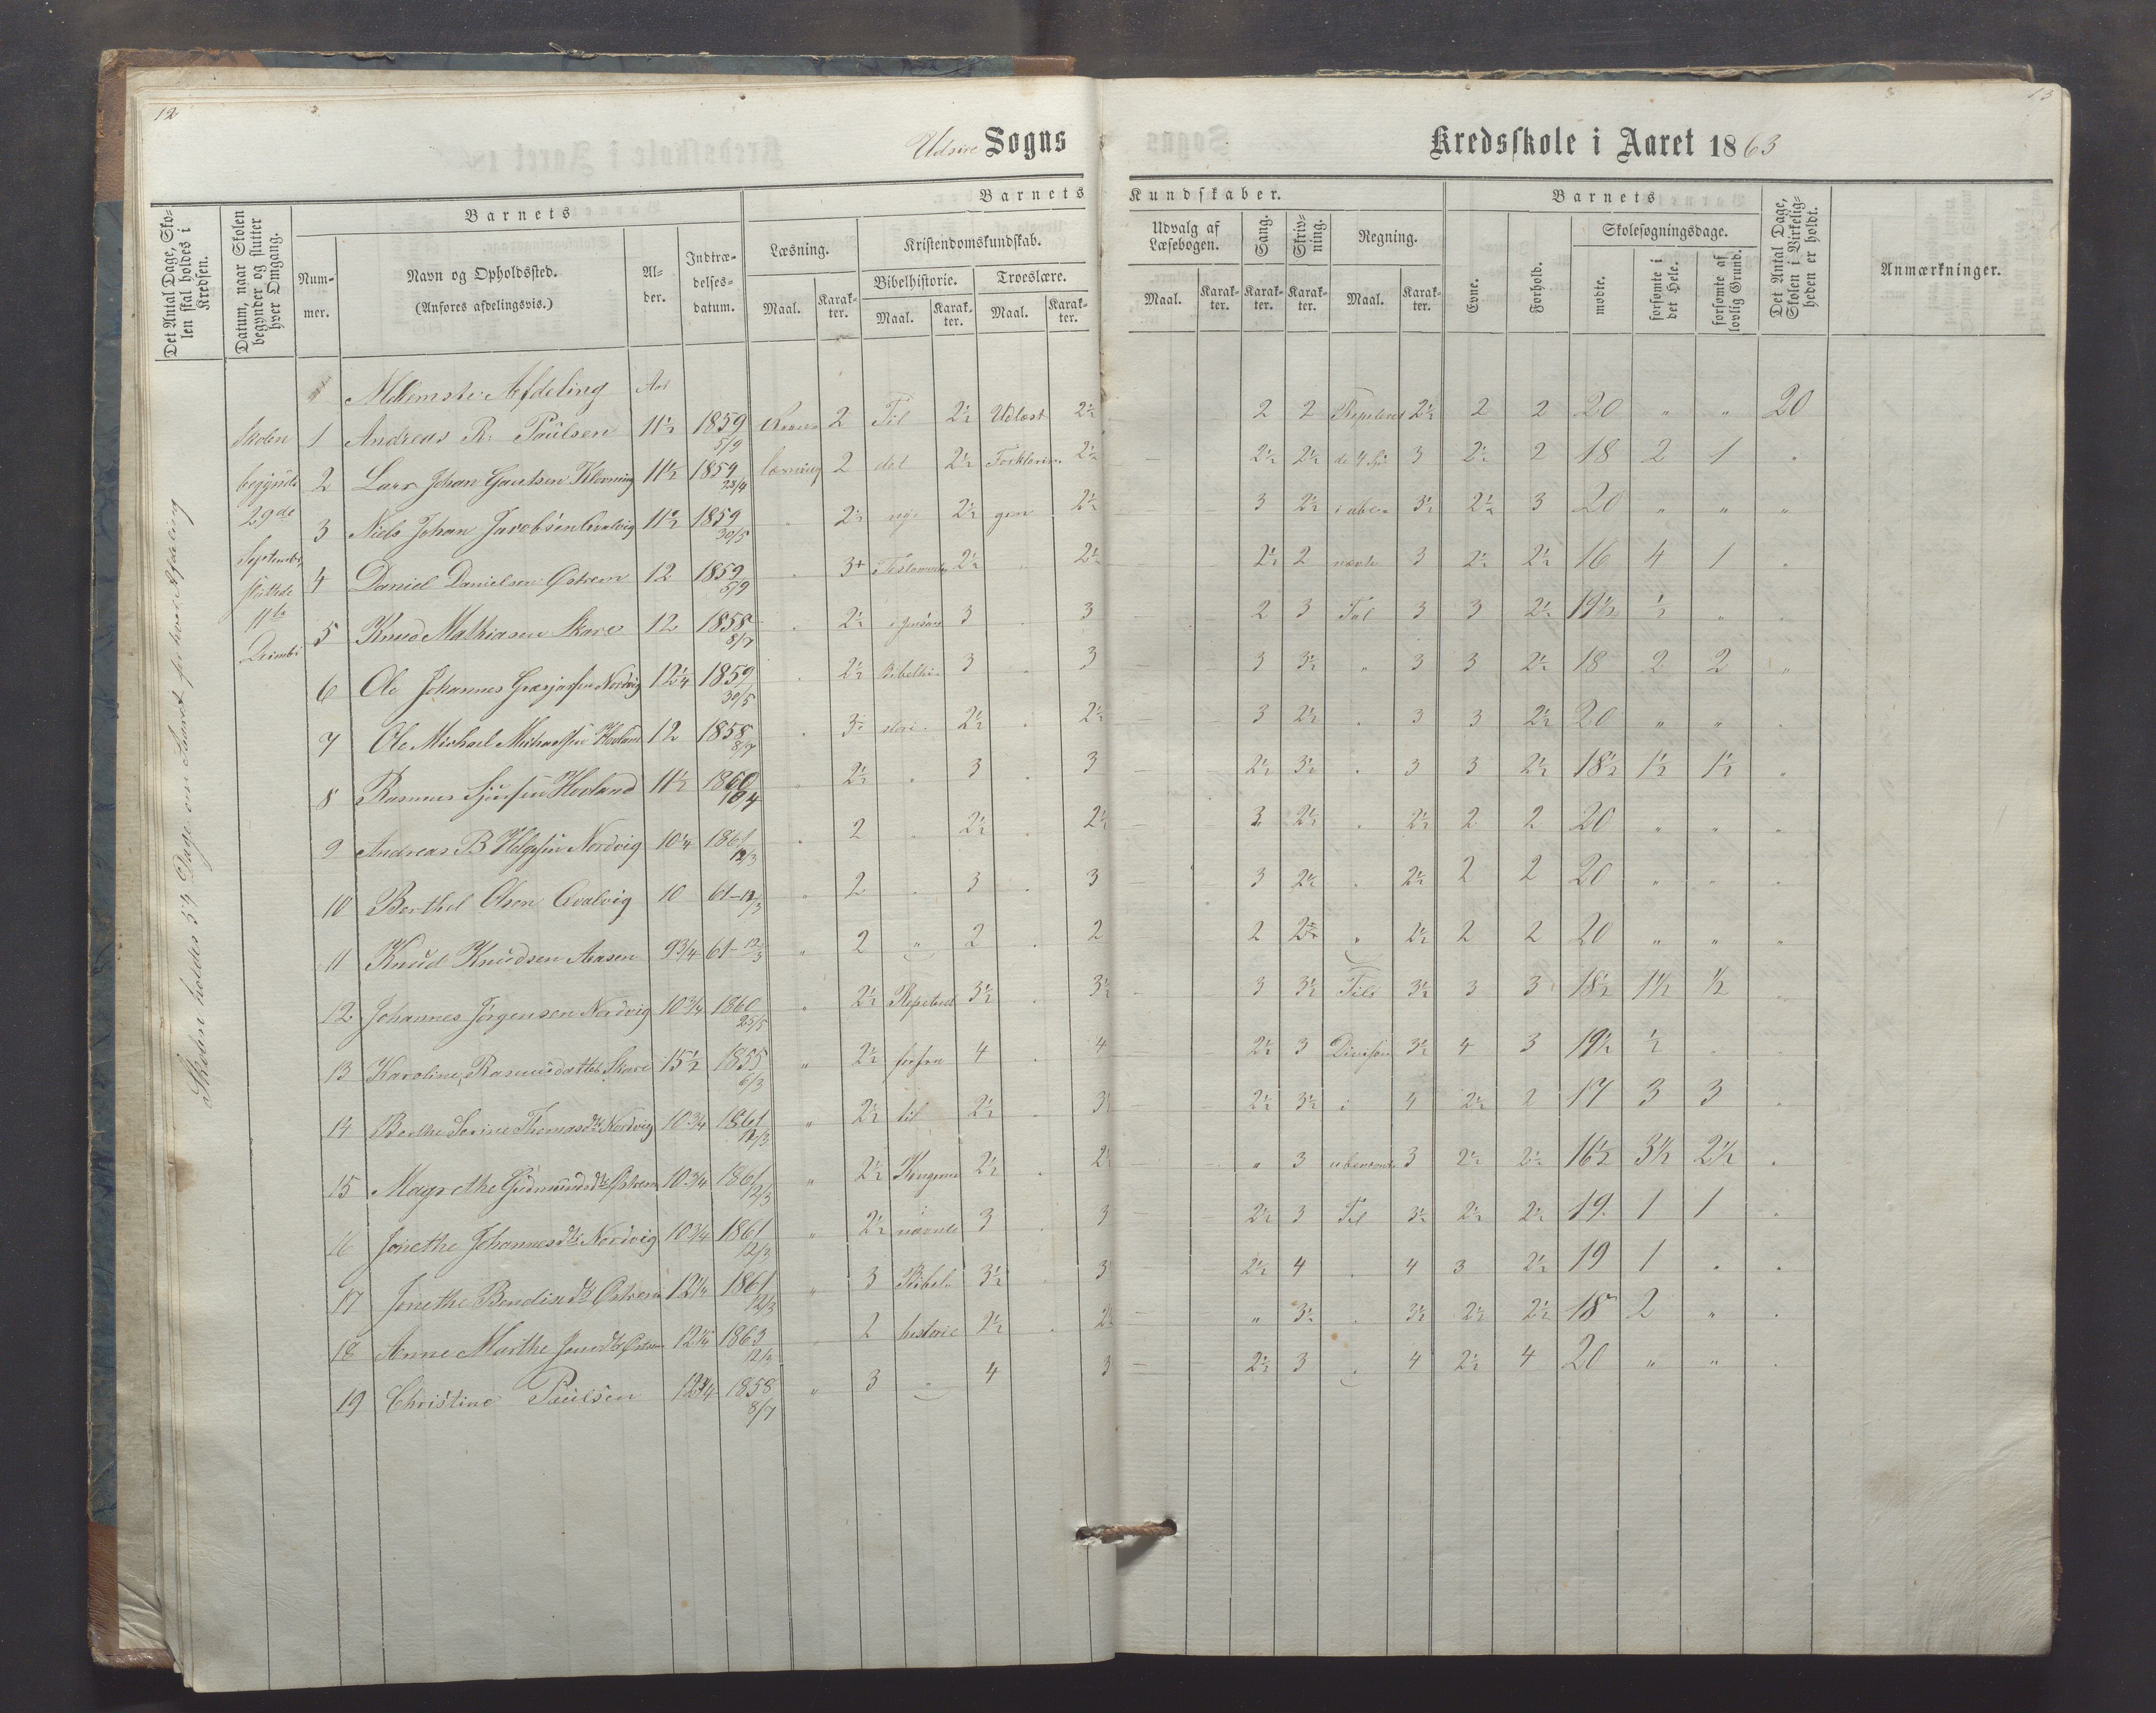 12
13
Udsire Sogns
Kredsskole i Aaret 1863
Det Antal Dage, Skolen skal holdes i Kredsen.
Datum, naar Skolen begynder og slutter hver Omgang.
Barnets
Nummer.
Navn og Opholdssted.
(Anføres afdelingsvis.)
Alder.
Indtrædelsesdatum.
Barnets
Kundskaber.
Læsning.
Maal.
Karakter.
Kristendomskundskab.
Bibelhistorie.
Maal.
Karakter.
Troeslære.
Maal.
Karakter.
Udvalg af Læsebogen.
Maal.
Karakter.
Sang.
Karakter.
Skrivning.
Karakter.
Regning.
Maal.
Karakter.
Barnets
Evne.
Forhold.
Skolesøgningsdage.
mødte.
forsømte i det Hele.
forsømte af lovlig Grund.
Det Antal Dage, Skolen i Virkeligheden er holdt.
Anmærkninger.
Skolen holdes 54 Dage om Aaret for hver Afdeling
Skolen begyndte 29de September sluttede 11te
Mellemste Afdeling Aar
1 Andreas R. Paulsen 11½ 1859 5/9 2 Til 2½ Udlæst 2½ 2 2 Repeteret 2½ 2 2 20 " " 20
2 Lars Johan Gautsen Klovning 11½ 1859 23/4 læsning 2 det 2½ 2½ 2½ 2½ de 4 3 2½ 2 18 2 1 "
3 Niels Johan Jacobsen Qvalvig 11½ 1859 30/5 " 2½ nye 2½ gen 2½ 3 2½ 3½ 2½ 3 20 " " "
4 Daniel Danielsen Østrem 12 1859 5/9 " 3+ 2½ " 2½ 2½ 2 nævnte 3 2½ 2½ 16 4 1 "
5 Knud Mathiasen Skare 12 1858 8/7 " 2½ 3 " 3 2 3 Tal 3 3 2½ 19½ ½ " "
6 Ole Johannes Nordvig 12¼ 1859 30/5 " 2½ Bibelhi- 3 " 3 3 3½ " 3 3 2½ 18 2 2 "
7 Ole Michael Michaelsen Hovland 12 1858 8/7 " 3½ storie 2½ " 2½ 3 2½ " 3 3 2½ 20 " " "
8 Rasmus Sjursen Hovland 11½ 1860 " 2½ " 3 " 3 2½ 3½ " 3 3 2½ 18½ 1½ 1½ "
9 Andreas B Helgesen Nordvig 10¼ 1861 12/3 " 2 " 2½ " 2½ 3 2½ " 2½ 2 2 20 " " "
10 Berthel Olsen Qvalvig 10 61-12/3 " 2 " 3 " 3 3 2½ " 2½ 2 2 20 " " "
11 Knud Knudsen Aasen 9¾ 61-12/3 " 2 " 2 " 2 2 2½ " 2½ 2 2 20 " " "
12 Johannes Jörgensen Nordvig 10¾ 1860 25/5 " 2½ Repeteret 3½ " 3½ 3 3½ Til 3½ 3 3 18½ 1½ ½ "
13 Karoline Rasmusdatter Skare 15½ 1855 6/3 " 2½ forfra 4 " 4 2½ 3 Division 3½ 4 3 19½ ½ " "
14 Berthe Serine Thomasdtr Nordvig 10¾ 1861 12/3 " 2½ til 2½ " 3½ 2½ 3½ i 4 2½ 2 17 3 3 "
15 Magrethe Gudmundsdtr Østrem 10¾ 1861 12/3 " 2½ Kongerne 2½ " 2½ " 3 ubenævnte 3 2½ 2½ 16½ 3½ 2½ "
16 Jonethe Johannesdtr Nordvig 10¾ 1861 12/3 " 2½ nævnte 3 " 3 2½ 3 Tal 3½ 2½ 2½ 19 1 1 "
17 Jonethe Bendixdtr Østrem 12¼ 1861 12/3 " 3 Bibel- 3½ " 3 2½ 4 " 4 3 2½ 19 1 " "
18 Anne Marthe Østrem 12¼ 1863 12/3 " 2 historie 2½ " 2½ " 3½ " 3½ 2½ 2½ 18 2 " "
19 Christine Paulsen 12¾ 1858 8/7 " 3 " 4 3 2½ 3 " 4 2½ 4 20 " " "